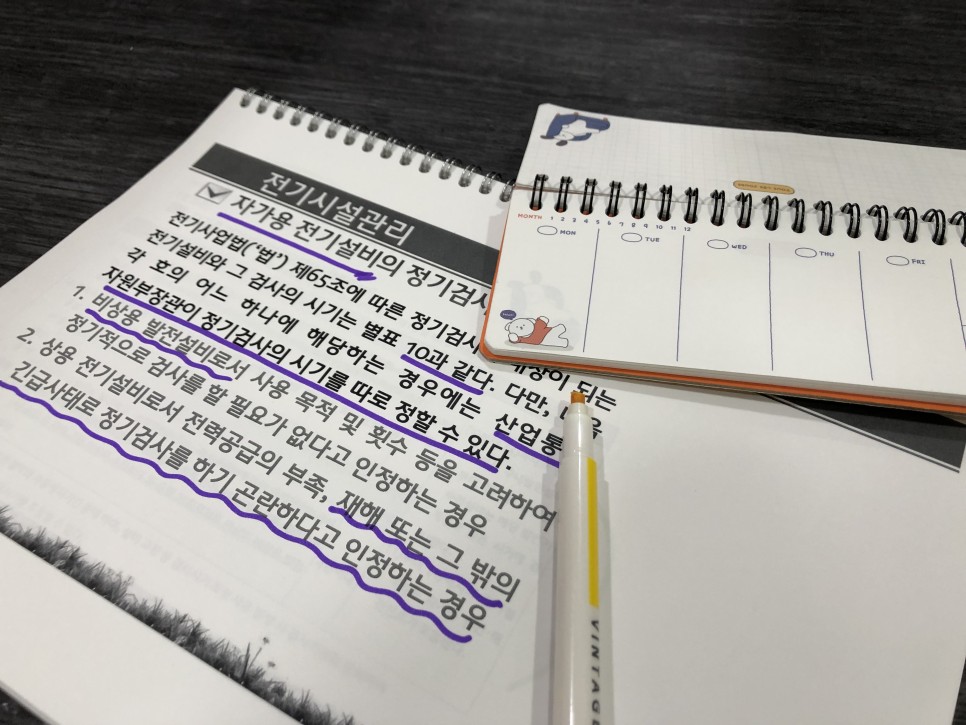 전기시설관리
자가용 전기설비의 정기검사
전기사업법('법') 제65조에 따른 정기검사 대상이 되는
전기설비와 그 검사의 시기는 별표 10과 같다. 다만, 다음
각 호의 어느 하나에 해당하는 경우에는 산업통
자원부장관이 정기검사의 시기를 따로 정할 수 있다.
1. 비상용 발전설비로서 사용 목적 및 횟수 등을 고려하여
정기적으로 검사를 할 필요가 없다고 인정하는 경우
2. 상용 전기설비로서 전력공급의 부족, 재해 또는 그 밖의
긴급사태로 정기검사를 하기 곤란하다고 인정하는 경우
MONTH 1 2 3 4 5 6 7 8 9 10 11 12
MON TUE WED THU FRI
VINTAGE